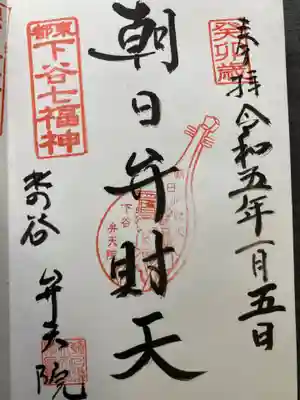 奉拝 令和五年一月五日
癸卯歳
朝日弁財天
下谷
弁天院
東都
下谷七福神
水の谷 弁天院